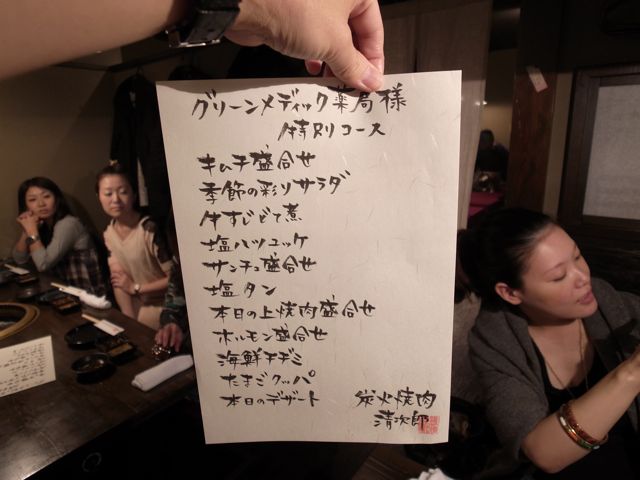 グリーンメディック薬局様
特別コース
キムチ盛合せ
季節の彩りサラダ
牛すじどて煮
塩ハツユッケ
サンチュ盛合せ
塩タン
本日の上焼肉盛合せ
ホルモン盛合せ
海鮮チヂミ
たまごクッパ
本日のデザート
炭火焼肉
清次郎